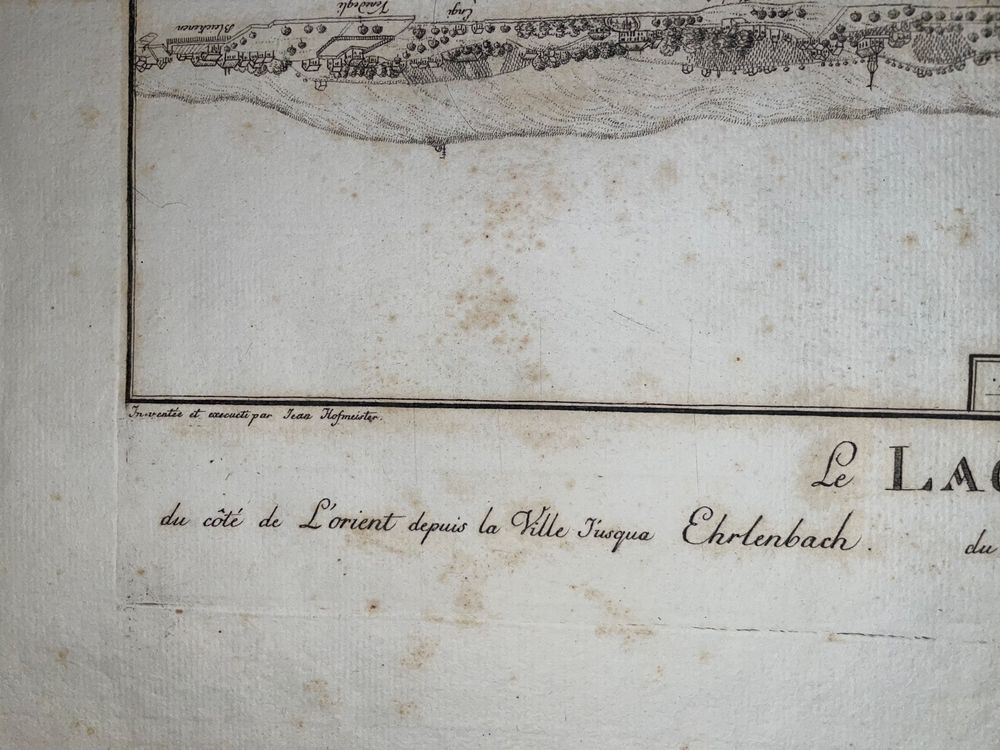 Bleicherwe
Venedegli
Enge
In-ventée et execueti par Jean Hofmeister.
Le LAC
du côté de L'orient depuis la Ville Jusqua Ehrlenbach. du